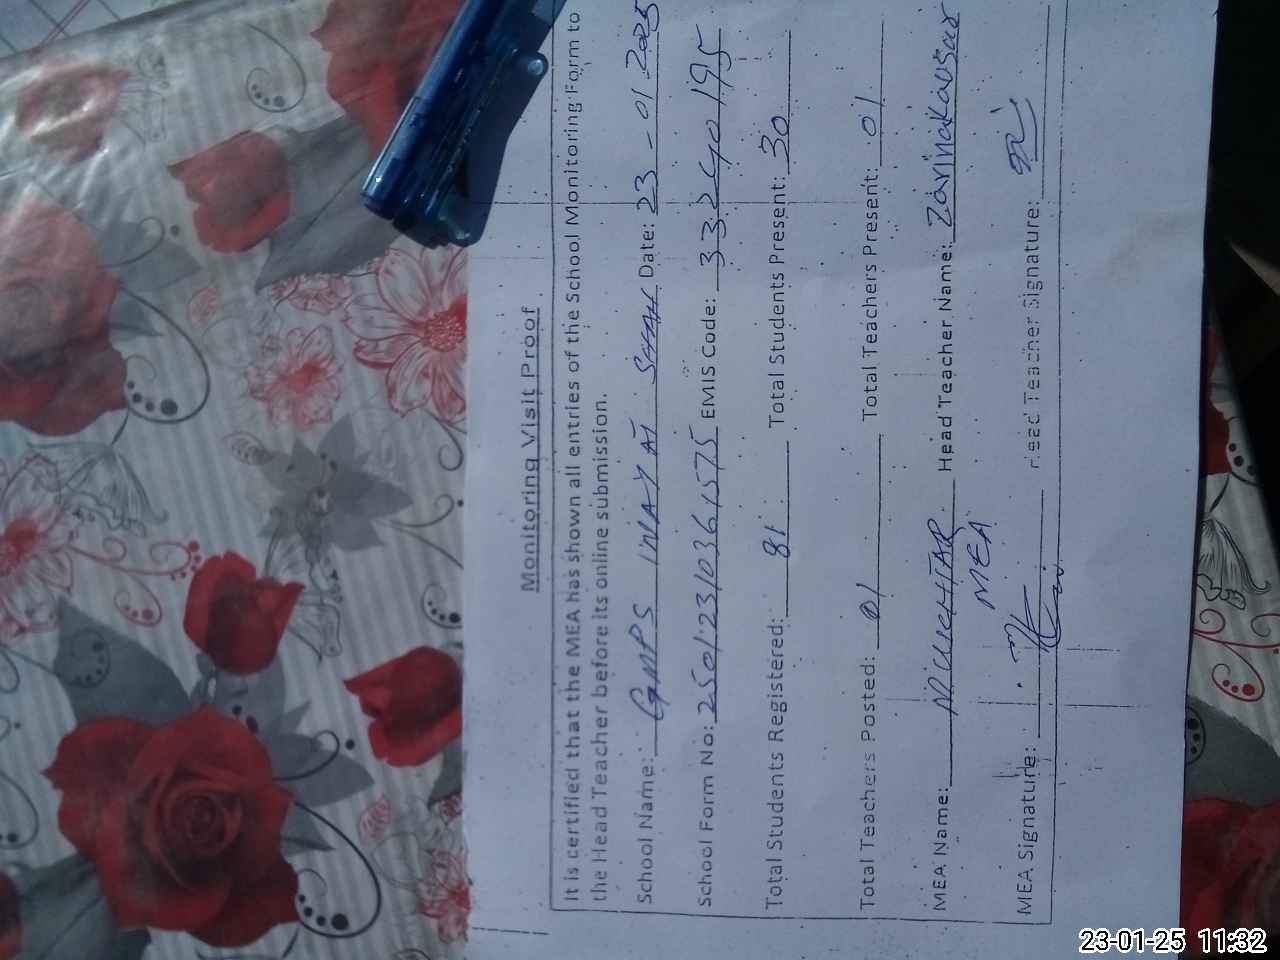 Monitoring Visit Proof
It is certified that the MEA has shown all entries of the School Monitoring Form to
the Head Teacher before its online submission.
School Name: GMPS INAYAT SHAH Date: 23-01-2025
School Form No: 25012310361575 EMIS Code: 33240195
Total Students Registered: 81 Total Students Present: 30
Total Teachers Posted: 01 Total Teachers Present: 01
MEA Name: MUKHTAR Head Teacher Name: Zarina Kausar
MEA
MEA Signature: Head Teacher Signature:
23-01-25 11:32